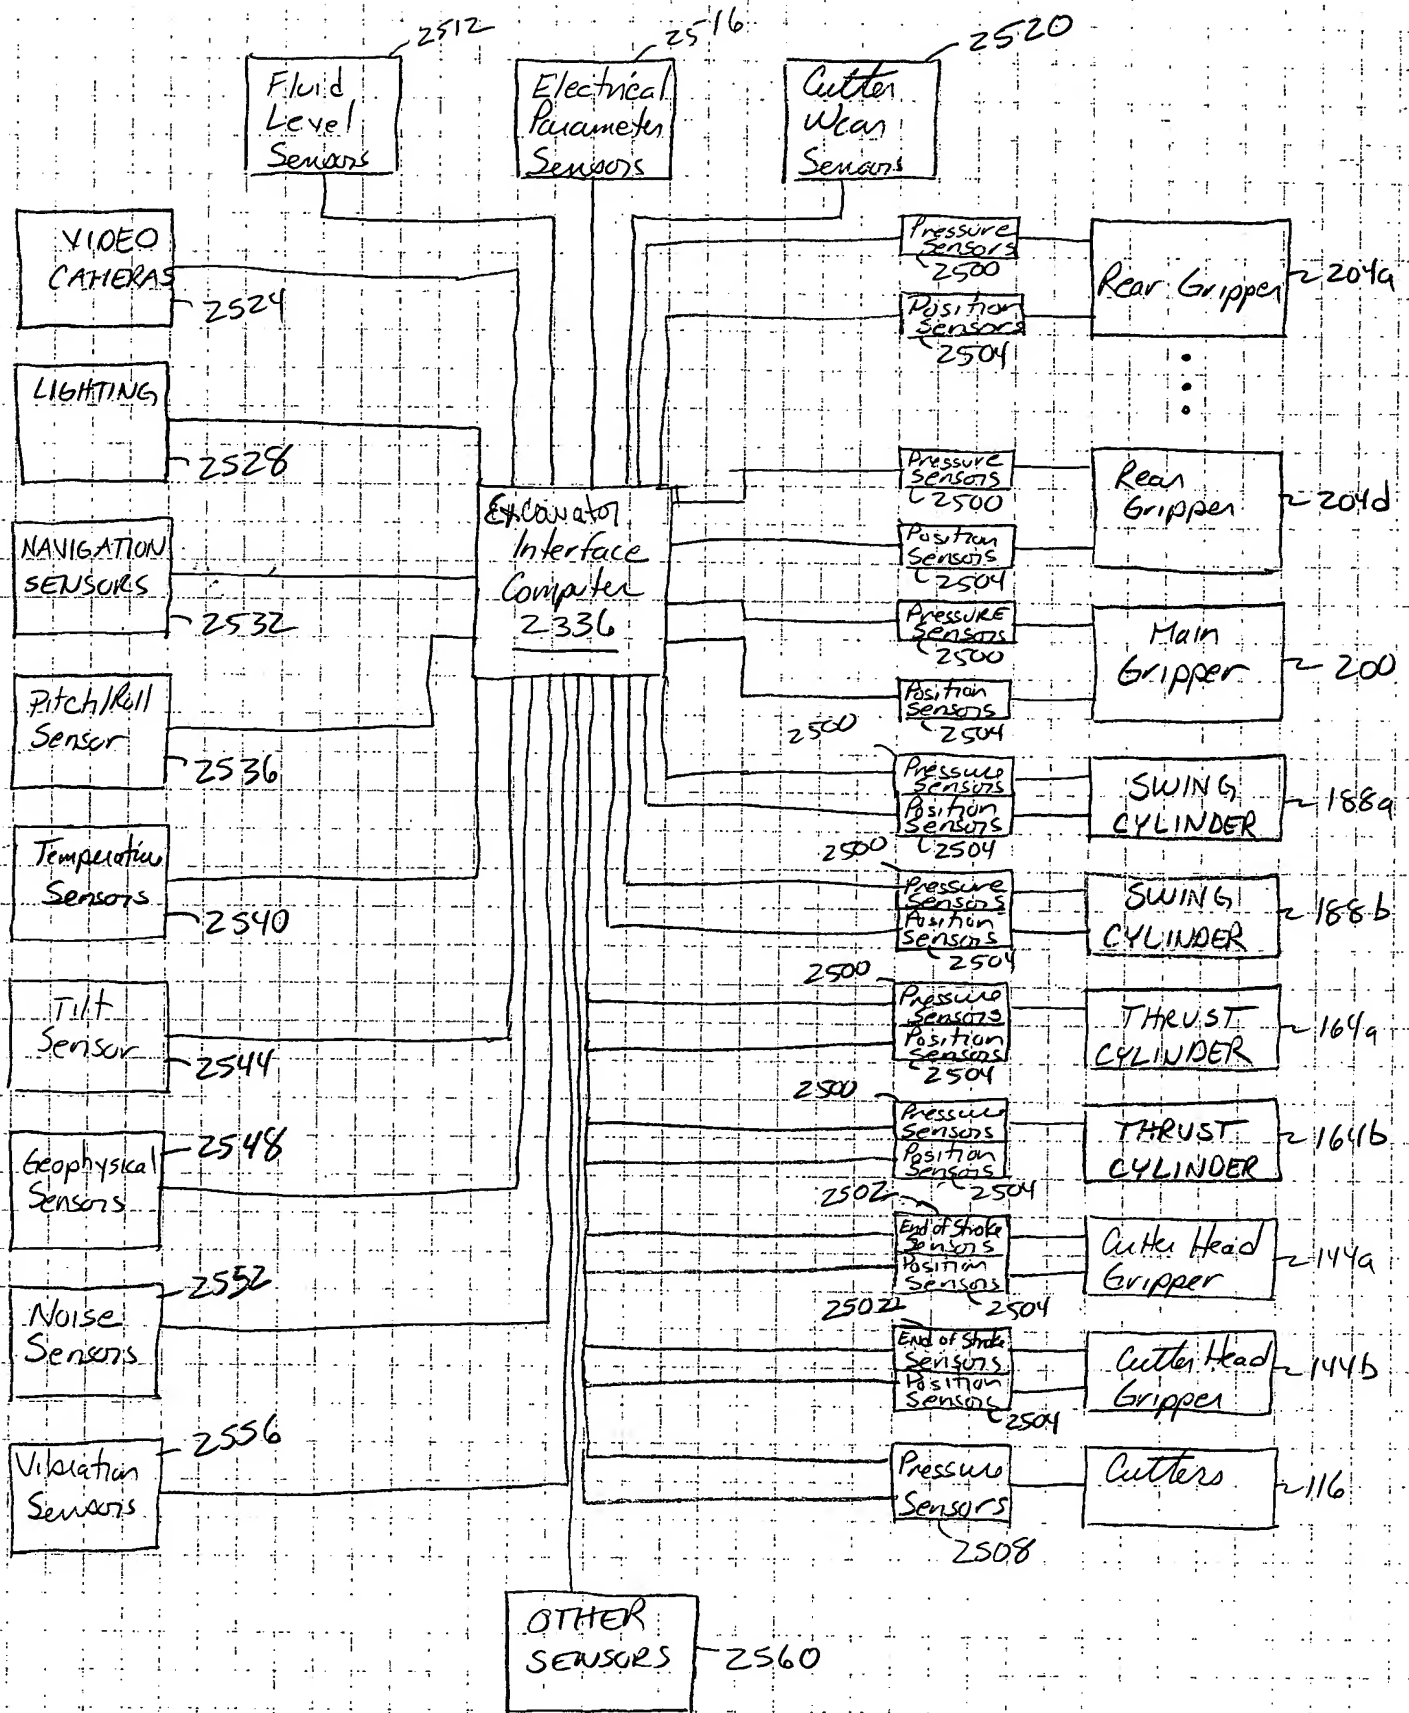 2512
2516
2520
Fluid
Level
Sensors
Electrical
Parameter
Sensors
Cutter
Wear
Sensors
VIDEO
CAMERAS
2524
LIGHTING
2528
NAVIGATION
SENSORS
2532
Pitch/Roll
Sensor
2536
Temperature
Sensors
2540
Tilt
Sensor
2544
Geophysical
Sensors
2548
Noise
Sensors
2552
Vibration
Sensors
2556
Excavator
Interface
Computer
2336
OTHER
SENSORS
2560
Pressure
Sensors
2500
Position
Sensors
2504
Rear Gripper
204a
Pressure
Sensors
2500
Position
Sensors
2504
Rear
Gripper
204d
PressURE
Sensors
2500
Position
Sensors
2504
Main
Gripper
200
2500
Pressure
Sensors
Position
Sensors
2504
SWING
CYLINDER
188a
2500
Pressure
Sensors
Position
Sensors
2504
SWING
CYLINDER
188b
2500
Pressure
Sensors
Position
Sensors
2504
THRUST
CYLINDER
164a
2500
Pressure
Sensors
Position
Sensors
2504
THRUST
CYLINDER
164b
2502
End of Stroke
Sensors
Position
Sensors
2504
Cutter Head
Gripper
144a
2502
End of Stroke
Sensors
Position
Sensors
2504
Cutter Head
Gripper
144b
Pressure
Sensors
2508
Cutters
116